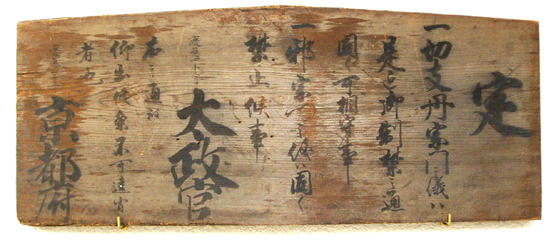 定
一切支丹宗門之儀ハ
是迄御制禁之通
固ク可相守事
一邪宗門之儀ハ固ク
禁止候事
太政官
右之通被
仰出候条不可違背
者也
京都府